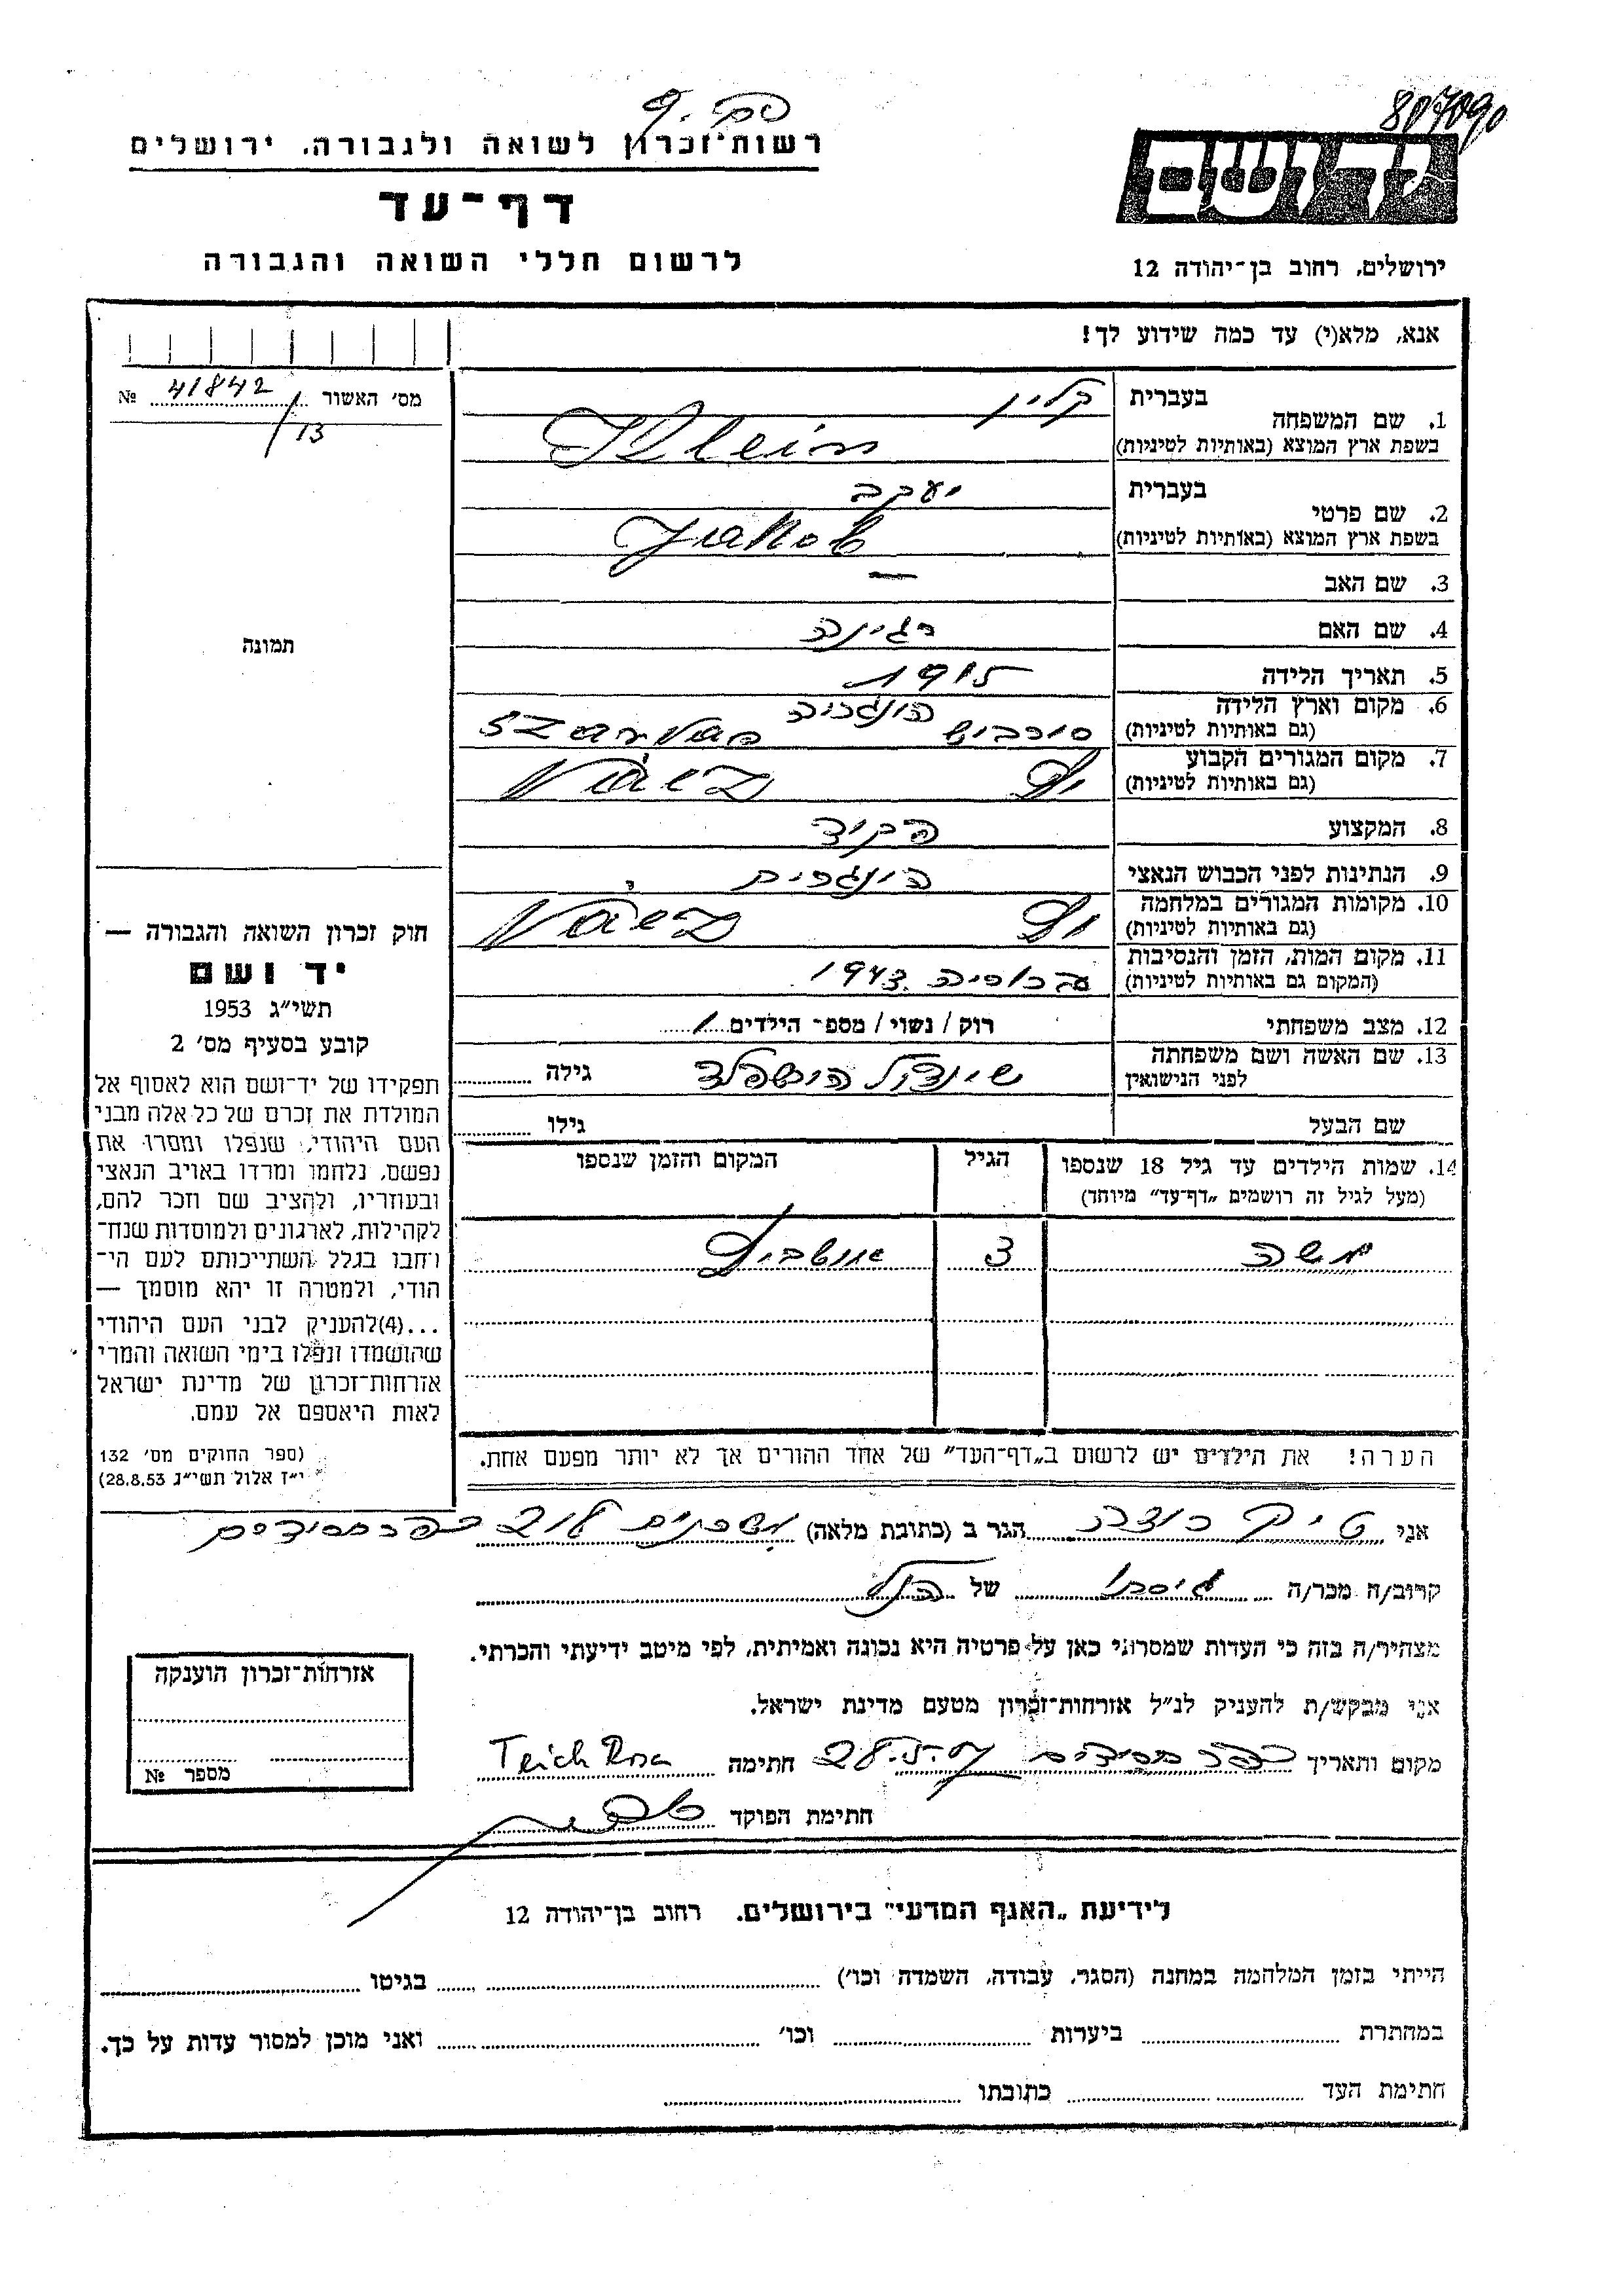 807090
רשות־זכרון לשואה ולגבורה. ירושלים
דף־עד
לרשום חללי השואה והגבורה
יד ושם
ירושלים, רחוב בן־יהודה 12
אנא, מלא(י) עד כמה שידוע לך!
מס׳ האשור 41842 №
/13
תמונה
1. שם המשפחה
בעברית קליין
בשפת ארץ המוצא (באותיות לטיניות) Klein
2. שם פרטי
בעברית יעקב
בשפת ארץ המוצא (באותיות לטיניות) Jakob
3. שם האב —
4. שם האם רגינה
5. תאריך הלידה 1915
6. מקום וארץ הלידה הונגריה
(גם באותיות לטיניות)
7. מקום המגורים הקבוע
(גם באותיות לטיניות)
8. המקצוע פקיד
9. הנתינות לפני הכבוש הנאצי
10. מקומות המגורים במלחמה
(גם באותיות לטיניות)
11. מקום המות, הזמן והנסיבות
(המקום גם באותיות לטיניות) 1943
12. מצב משפחתי רוק / נשוי / מספ׳ הילדים 1
13. שם האשה ושם משפחתה
לפני הנישואין גילה
שם הבעל גילו
14. שמות הילדים עד גיל 18 שנספו
(מעל לגיל זה רושמים „דף־עד״ מיוחד)
הגיל
המקום והזמן שנספו
משה 3 אושביץ
הערה! את הילדים יש לרשום ב„דף־העד״ של אחד ההורים אך לא יותר מפעם אחת.
חוק זכרון השואה והגבורה —
יד ושם
תשי״ג 1953
קובע בסעיף מס׳ 2
תפקידו של יד־ושם הוא לאסוף אל
המולדת את זכרם של כל אלה מבני
העם היהודי, שנפלו ומסרו את
נפשם, נלחמו ומרדו באויב הנאצי
ובעוזריו, ולהציב שם וזכר להם,
לקהילות, לארגונים ולמוסדות שנח־
רחבו בגלל השתייכותם לעם הי־
הודי, ולמטרה זו יהא מוסמך —
...(4)להעניק לבני העם היהודי
שהושמדו ונפלו בימי השואה והמרי
אזרחות־זכרון של מדינת ישראל
לאות היאספם אל עמם.
(ספר החוקים מס׳ 132
י״ז אלול תשי״ג 28.8.53)
אני טייך רוזה הגר ב (כתובת מלאה)
קרוב/ה מכר/ה גיסתו של הנ״ל
מצהיר/ה בזה כי העדות שמסרתי כאן על פרטיה היא נכונה ואמיתית, לפי מיטב ידיעתי והכרתי.
אני מבקש/ת להעניק לנ״ל אזרחות־זכרון מטעם מדינת ישראל.
מקום ותאריך כפר חסידים חתימה Teich Rosa
חתימת הפוקד
אזרחות־זכרון הוענקה
מספר №
לידיעת „האגף המדעי״ בירושלים. רחוב בן־יהודה 12
הייתי בזמן המלחמה במחנה (הסגר, עבודה, השמדה וכו׳) בגיטו
במחתרת ביערות וכו׳ ואני מוכן למסור עדות על כך.
חתימת העד כתובתו